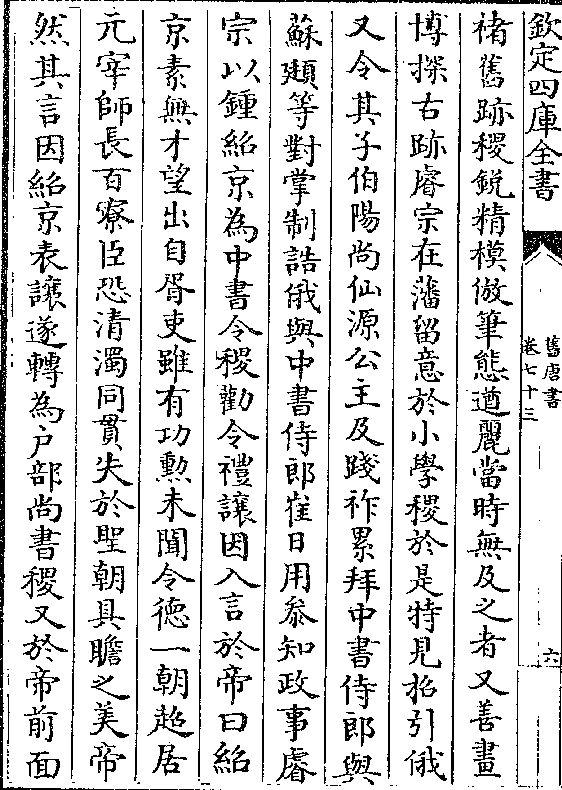 欽定四庫全書
舊唐書
卷七十三
六
禇舊跡稷銳精模倣筆態遒麗當時無及之者又善畫
博探古跡睿宗在藩留意於小學稷於是特見招引俄
又令其子伯陽尚仙源公主及踐祚累拜中書侍郎與
蘇頲等對掌制誥俄與中書侍郎崔日用叅知政事睿
宗以鍾紹京為中書令稷勸令禮讓因入言於帝曰紹
京素無才望出自胥吏雖有功勲未聞令徳一朝超居
元宰師長百寮臣恐清濁同貫失於聖朝具瞻之美帝
然其言因紹京表讓遂轉為户部尚書稷又於帝前面